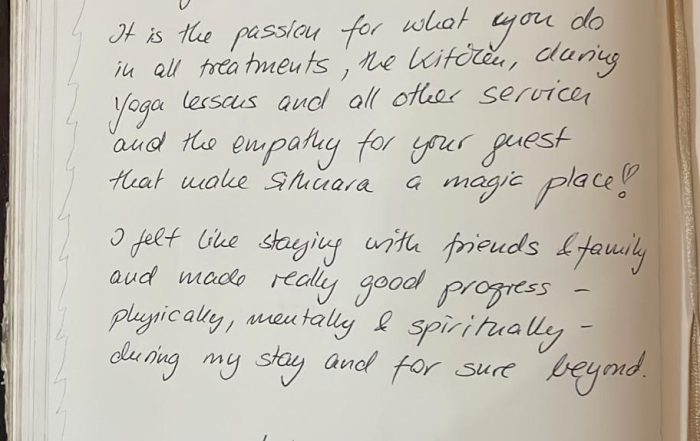 It is the passion for what you do
in all treatments, the kitchen, during
Yoga lessons and all other services
and the empathy for your guest
that make Sitharara a magic place!
I felt like staying with friends & family
and made really good progress -
physically, mentally & spiritually -
during my stay and for sure beyond.